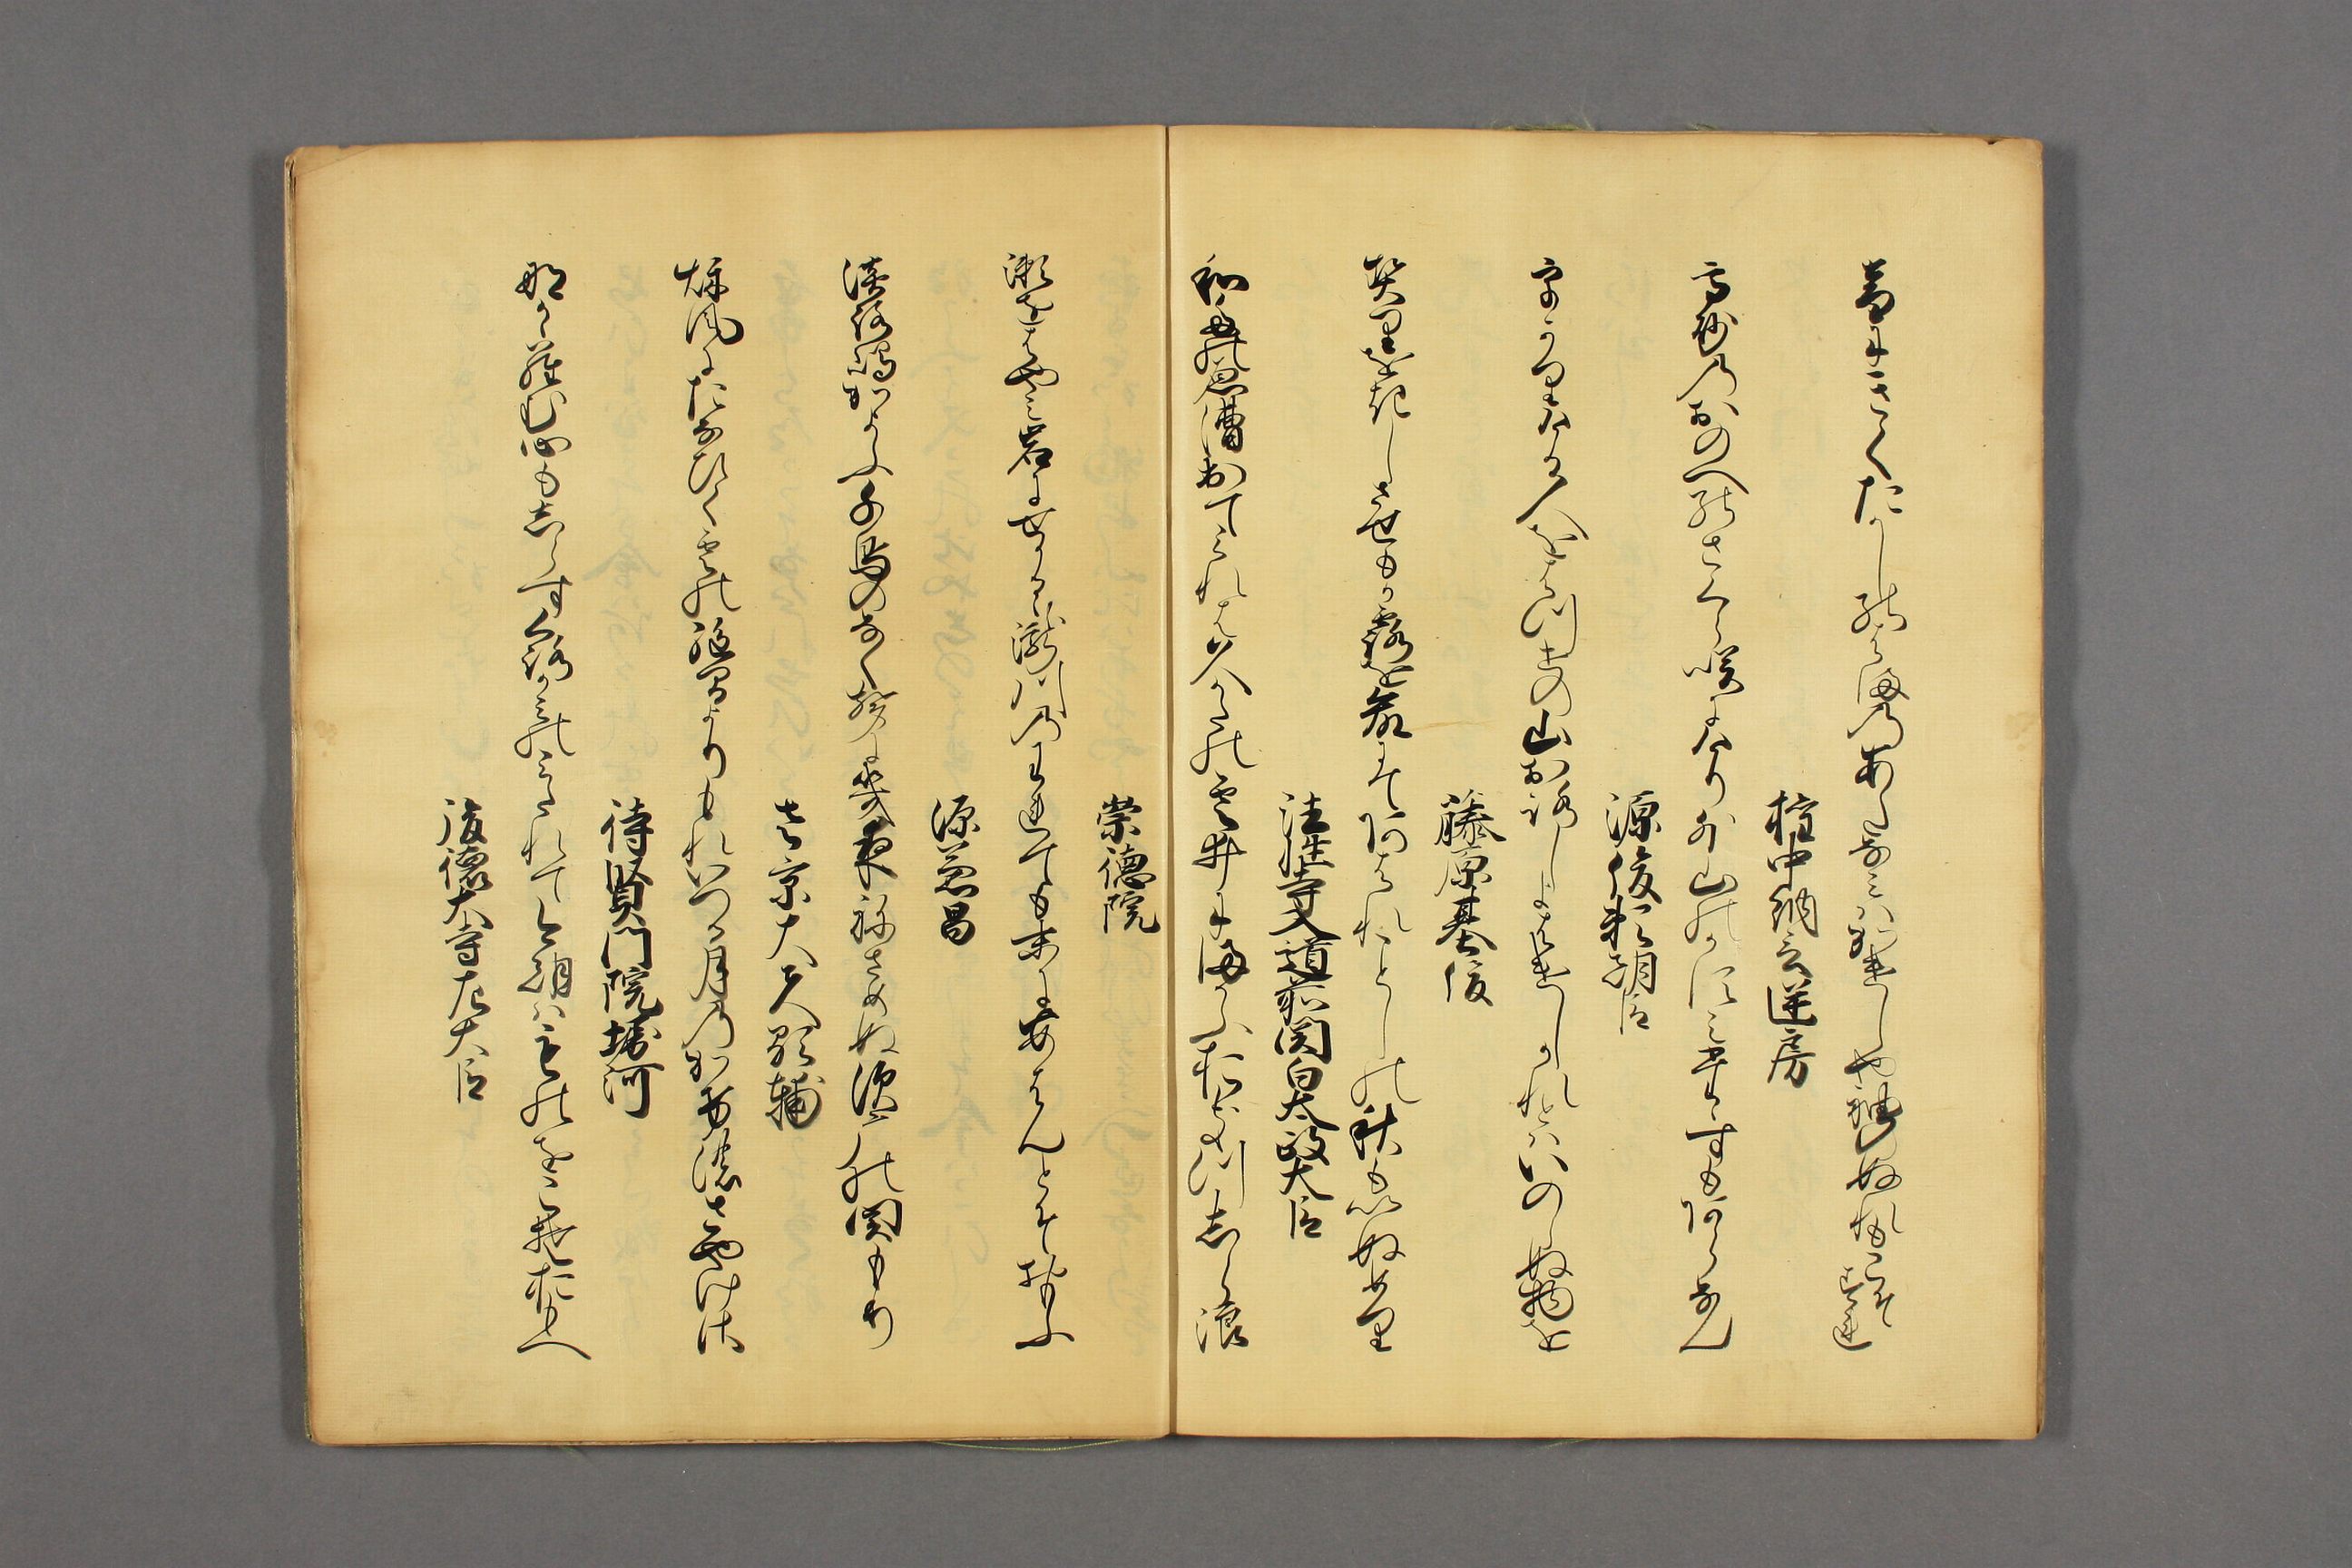 音にきくたかしのはまのあたなみはかけしや袖のぬれもこそすれ
権中納言匡房
高砂のおのへのさくら咲にけり外山のかすみたゝすもあらなん
源俊頼朝臣
うかりける人をはつせの山おろしよはけしかれとはいのらぬ物を
藤原基俊
契りをきしさせもか露を命にてあはれことしの秋もいぬめり
法性寺入道前関白太政大臣
和田の原漕出てみれは久かたの雲井にまかふおきつしら浪
崇徳院
瀬をはやみ岩にせかるゝ瀧川のわれても末にあはんとそ思ふ
源兼昌
淡路嶋かよふ千鳥のなく声に幾夜ねさめぬ須まの関もり
左京大夫顕輔
秋風にたなひく雲の絶間よりもれいつる月のかけのさやけさ
待賢門院堀河
なかゝらむ心もしらすくろかみのみたれて今朝は物をこそおもへ
後徳大寺左大臣